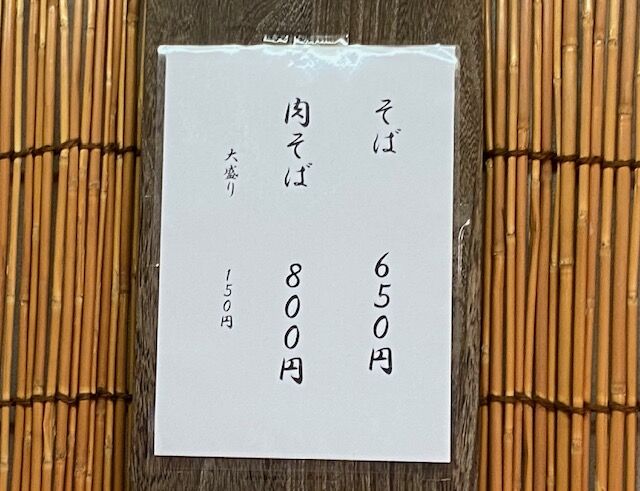 そば　650円
肉そば　800円
大盛り　150円